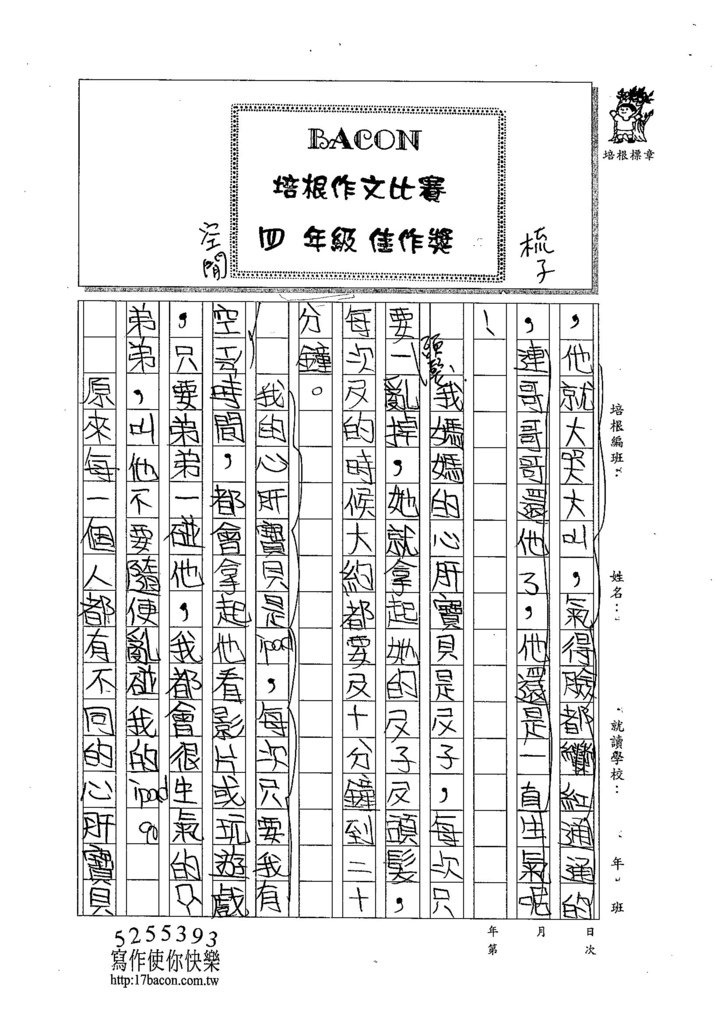 BACON
培根作文比賽
四 年級 佳作獎
培根標章
梳子
空閒
培根編班：
姓名：
就讀學校：
年 班
，他就大哭大叫，氣得臉都變紅通通的
，連哥哥還他了，他還是一直生氣呢
！
頭髮
我媽媽的心肝寶貝是反子，每次只
要一亂掉，她就拿起她的反子反頭髮，
每次反的時候大約都要反十分鐘到二十
分鐘。
我的心肝寶貝是ipad，每次只要我有
空哥時間，都會拿起他看影片或玩遊戲
，只要弟弟一碰他，我都會很生氣的只
弟弟，叫他不要隨便亂碰我的ipad。
原來每一個人都有不同的心肝寶貝
年 月 日
第 次
5255393
寫作使你快樂
http:17bacon.com.tw